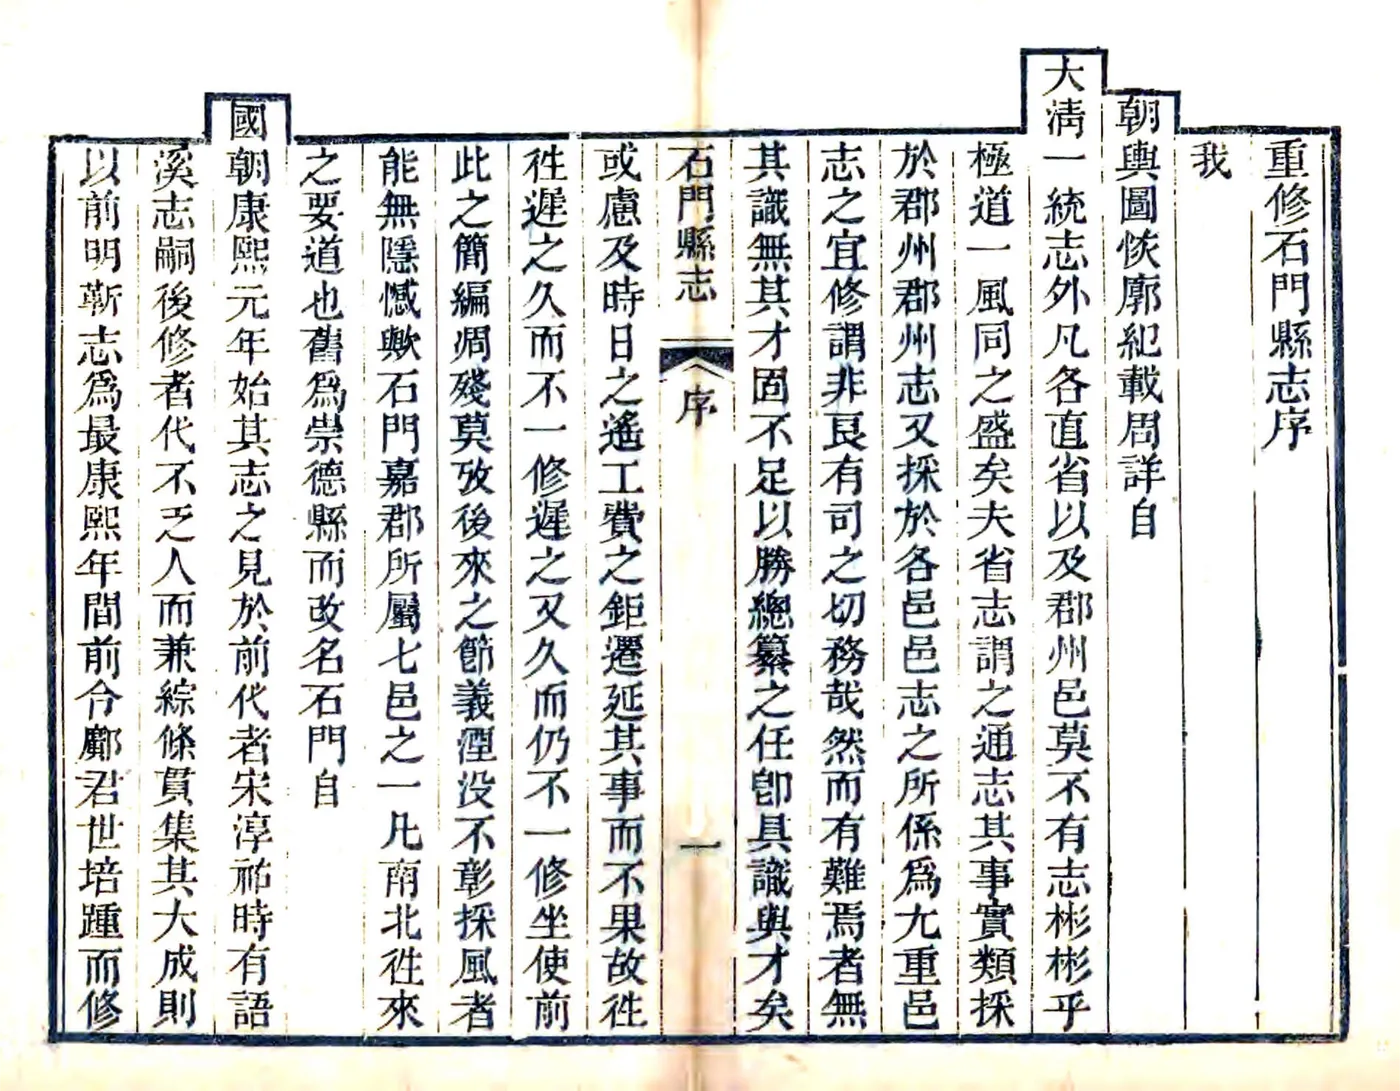 重修石門縣志序
我
朝輿圖恢廓紀載周詳自
大淸一統志外凡各直省以及郡州邑莫不有志彬彬乎
極道一風同之盛矣夫省志謂之通志其事實類採
於郡州郡州志又採於各邑邑志之所係爲尤重邑
志之宜修謂非良有司之切務哉然而有難焉者無
其識無其才固不足以勝總纂之任卽具識與才矣
石門縣志
序
一
或慮及時日之遙工費之鉅遷延其事而不果故徃
徃遲之久而不一修遲之又久而仍不一修坐使前
此之簡編凋殘莫攷後來之節義湮没不彰採風者
能無隱憾歟石門嘉郡所屬七邑之一凡南北徃來
之要道也舊爲崇德縣而改名石門自
國朝康熙元年始其志之見於前代者宋淳祐時有語
溪志嗣後修者代不乏人而兼綜條貫集其大成則
以前明靳志爲最康熙年間前令鄺君世培踵而修